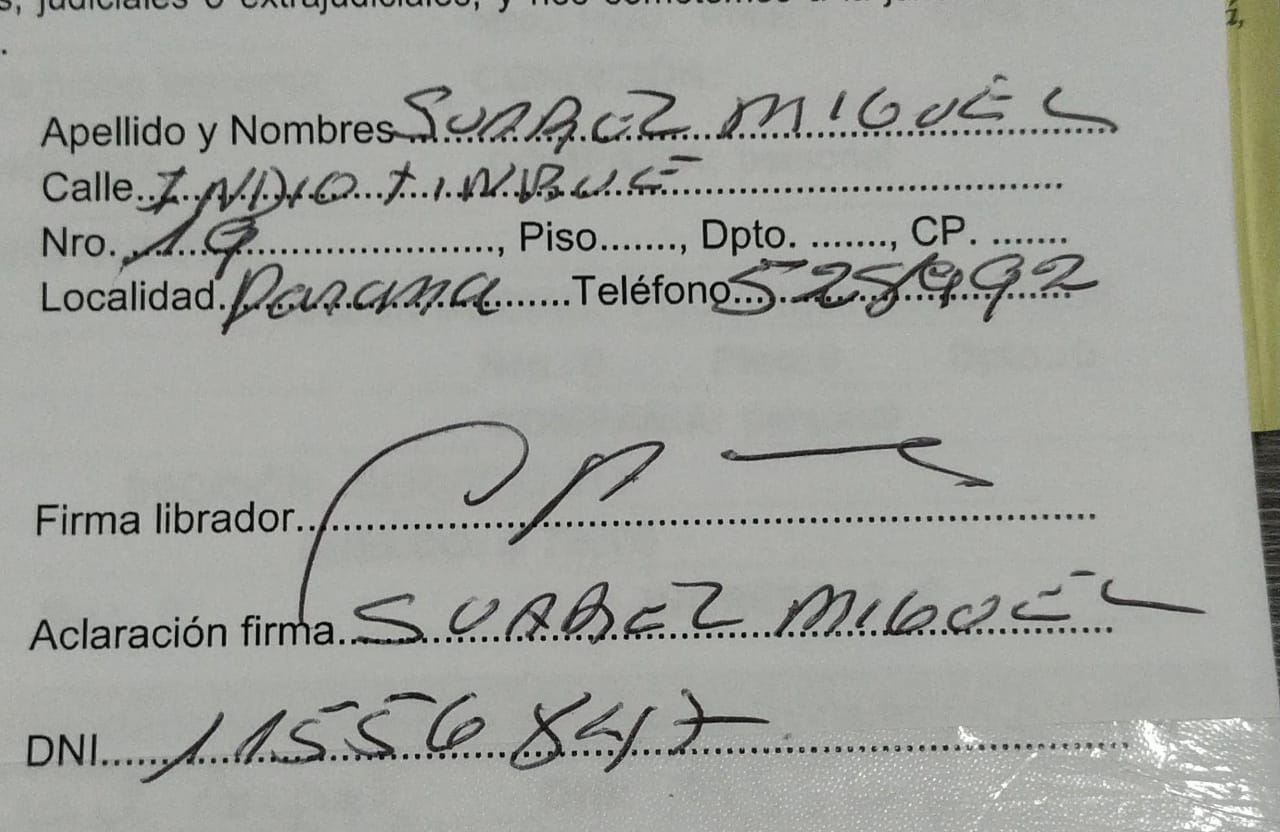 s, judiciales o extrajudiciales, y nos sometemos a la
.
Apellido y Nombres SUAREZ MIGUEL
Calle INDIO TINBUE
Nro. 19, Piso......., Dpto. ......., CP. .......
Localidad Parana Teléfono 525/992
Firma librador
Aclaración firma SUAREZ MIGUEL
DNI 11556847